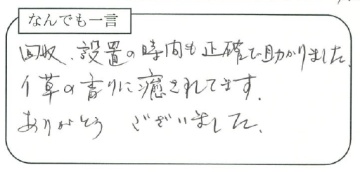 なんでも一言
回収、設置の時間も正確で助かりました。
イ草の香りに癒されてます。
ありがとう ございました。